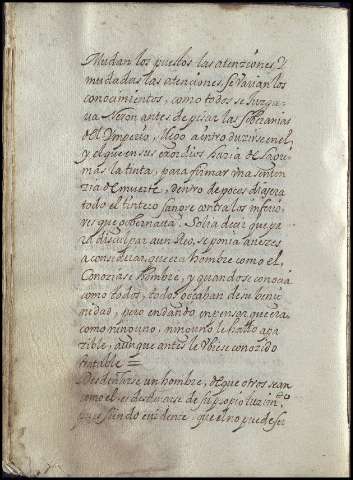 Mudan los puestos las atenziones, Y
mudadas las atenciones se varian los
conocimientos, como todos se Juzga-
ua Neron antes de pisar las soberanias
del Ymperio, llego a introduzirse en el,
y el que en sus exordios hacia de lagri-
mas la tinta, para firmar vna senten-
zia de muerte, dentro de pocos dias era
todo el tintero sangre contra los inferio-
res que gobernaua. Solia decir que pa-
ra disculpar a un Reo, se ponia a vezes
a considerar, que era hombre como el,
Conoziase hombre, y quando se conocia
como todos, todos gozaban de su benig-
nidad, pero en dando en pensar que era
como ninguno, ninguno le hallo apa-
zible, aunque antes le Vbiese conozido
tratable =
Desdeñarse un hombre, de que otros sean
como el, es desdeñarse de su propio
pues siendo evidente, que el no puede ser